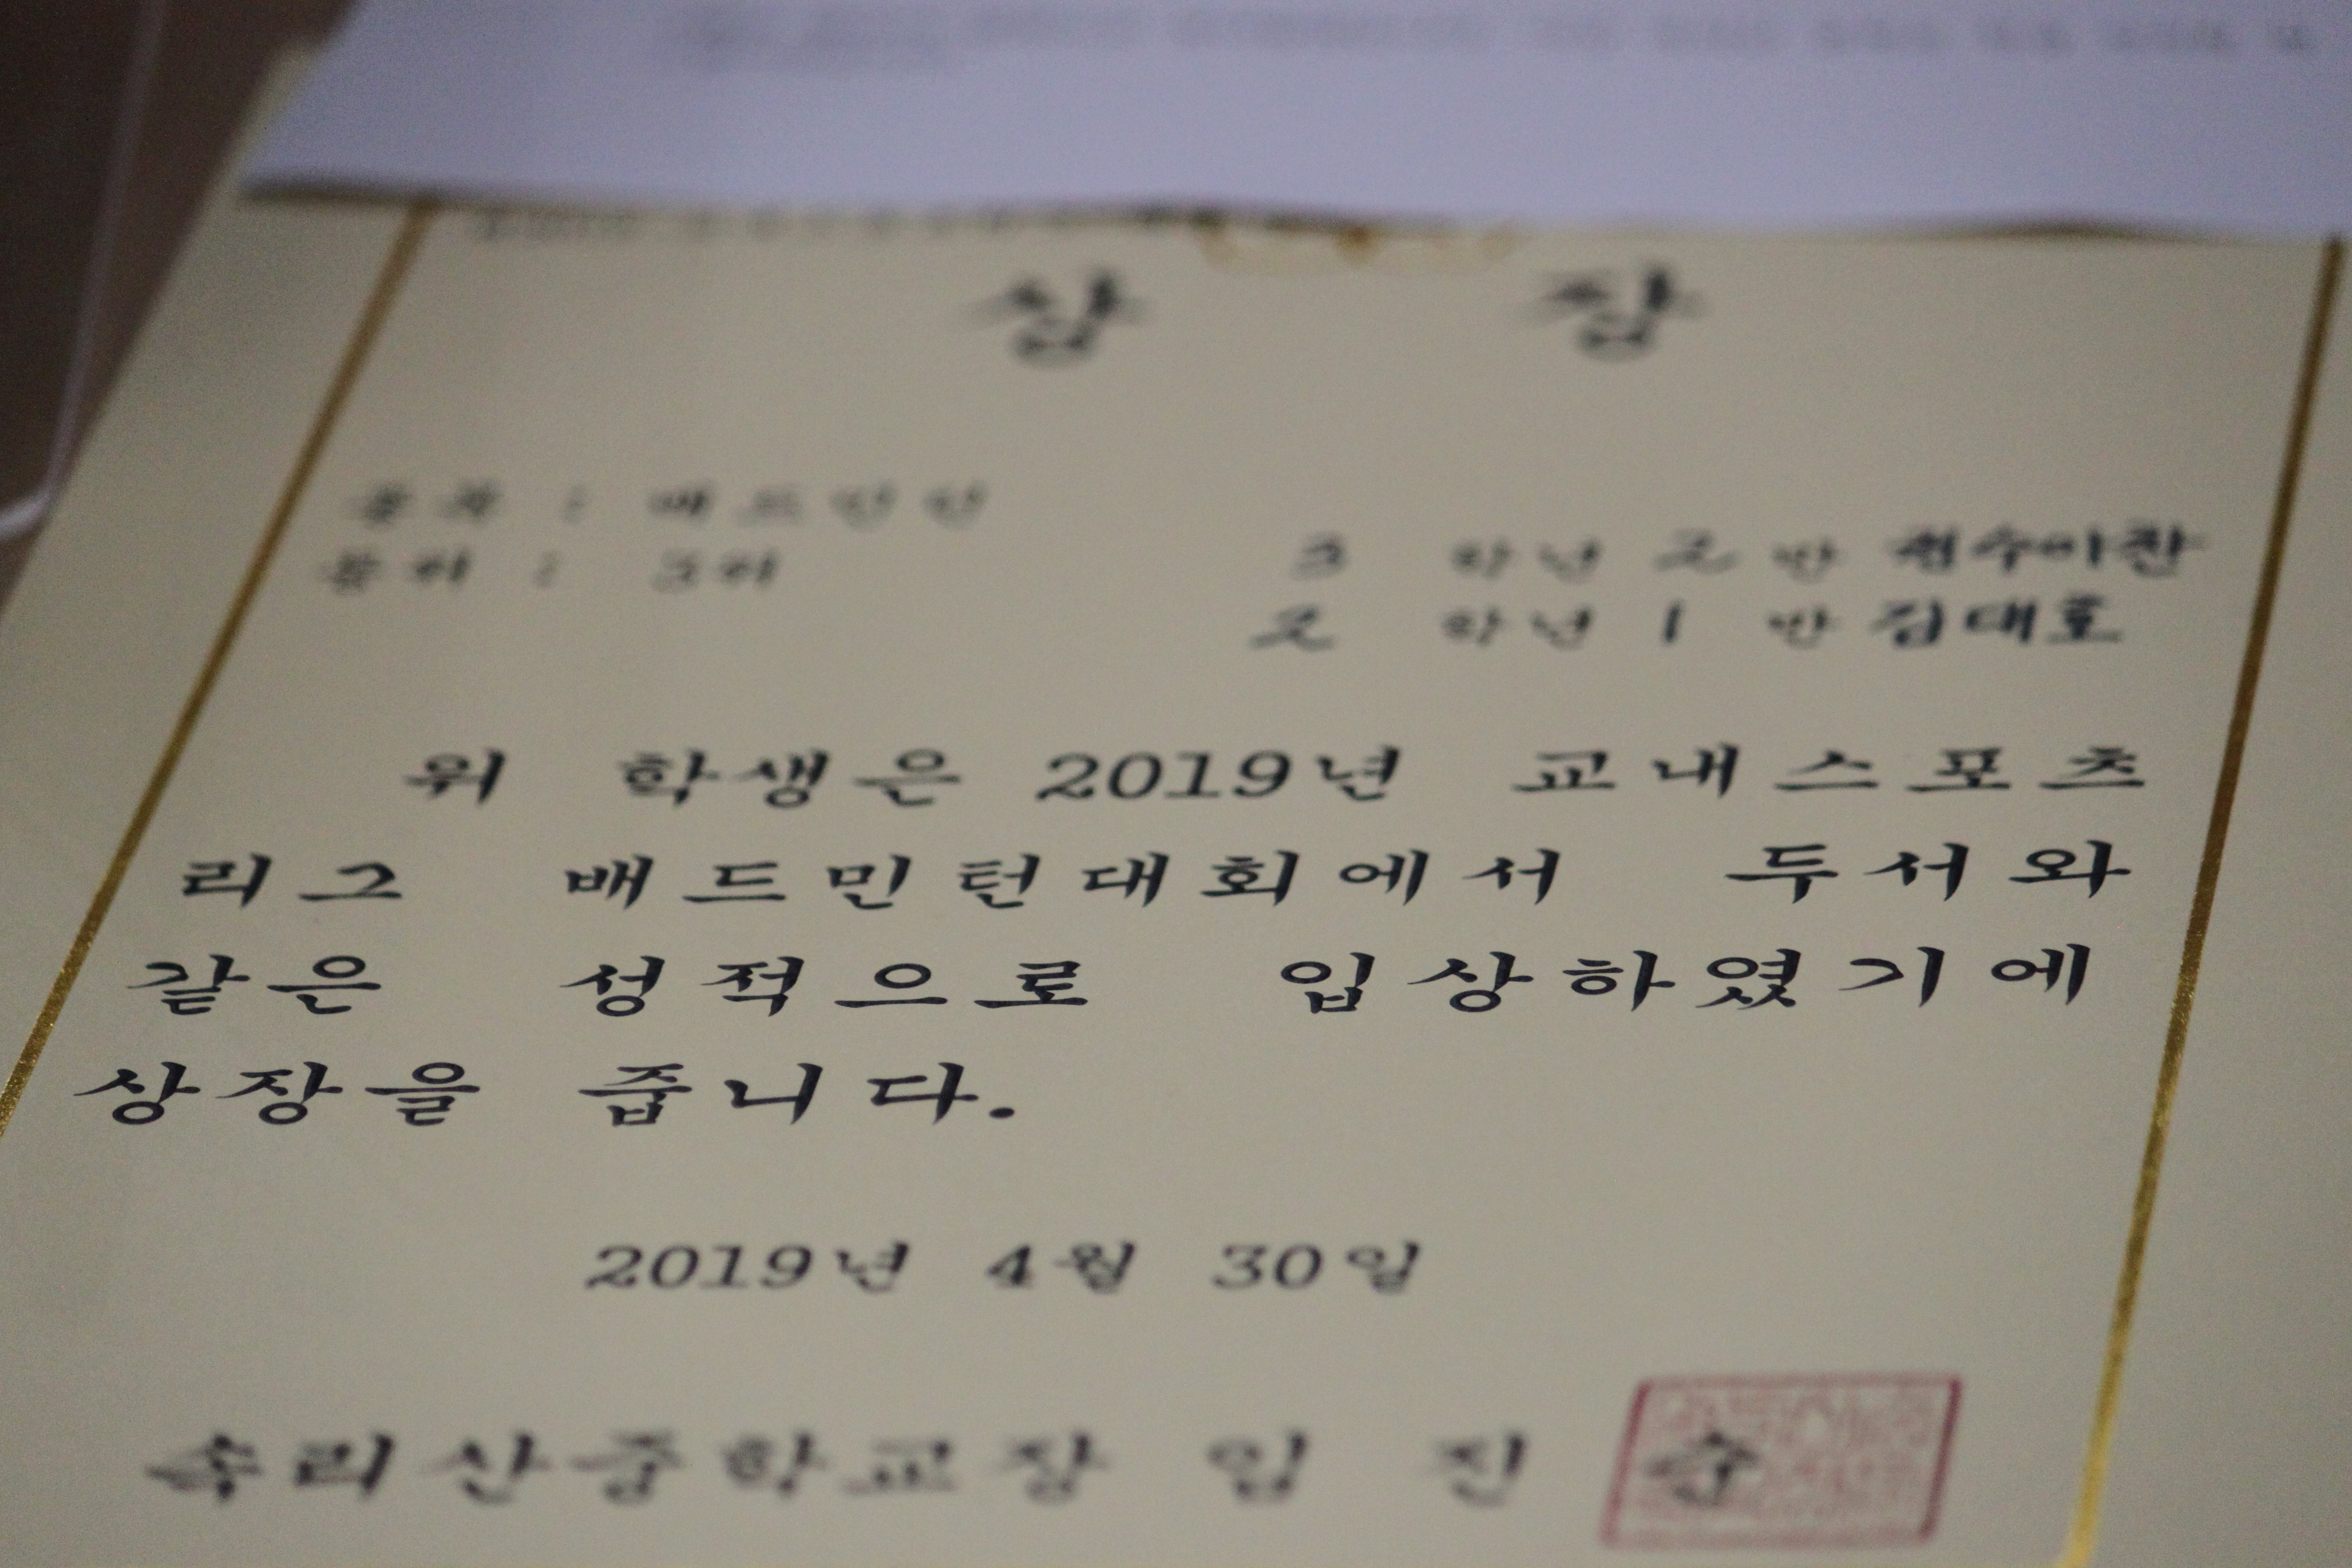 상 장
종목 : 배드민턴
3 학년 2 반
2 학년 1 반 김대호
위 학생은 2019년 교내스포츠
리그 배드민턴대회에서 두서와
같은 성적으로 입상하였기에
상장을 줍니다.
2019년 4월 30일
수리산중학교장 임 진